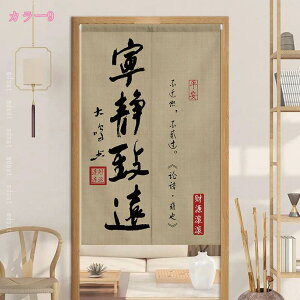 カラー9
寧静致遠
大鳴书
平安
不迁怒，不贰过。《论语·雍也》
财源滚滚